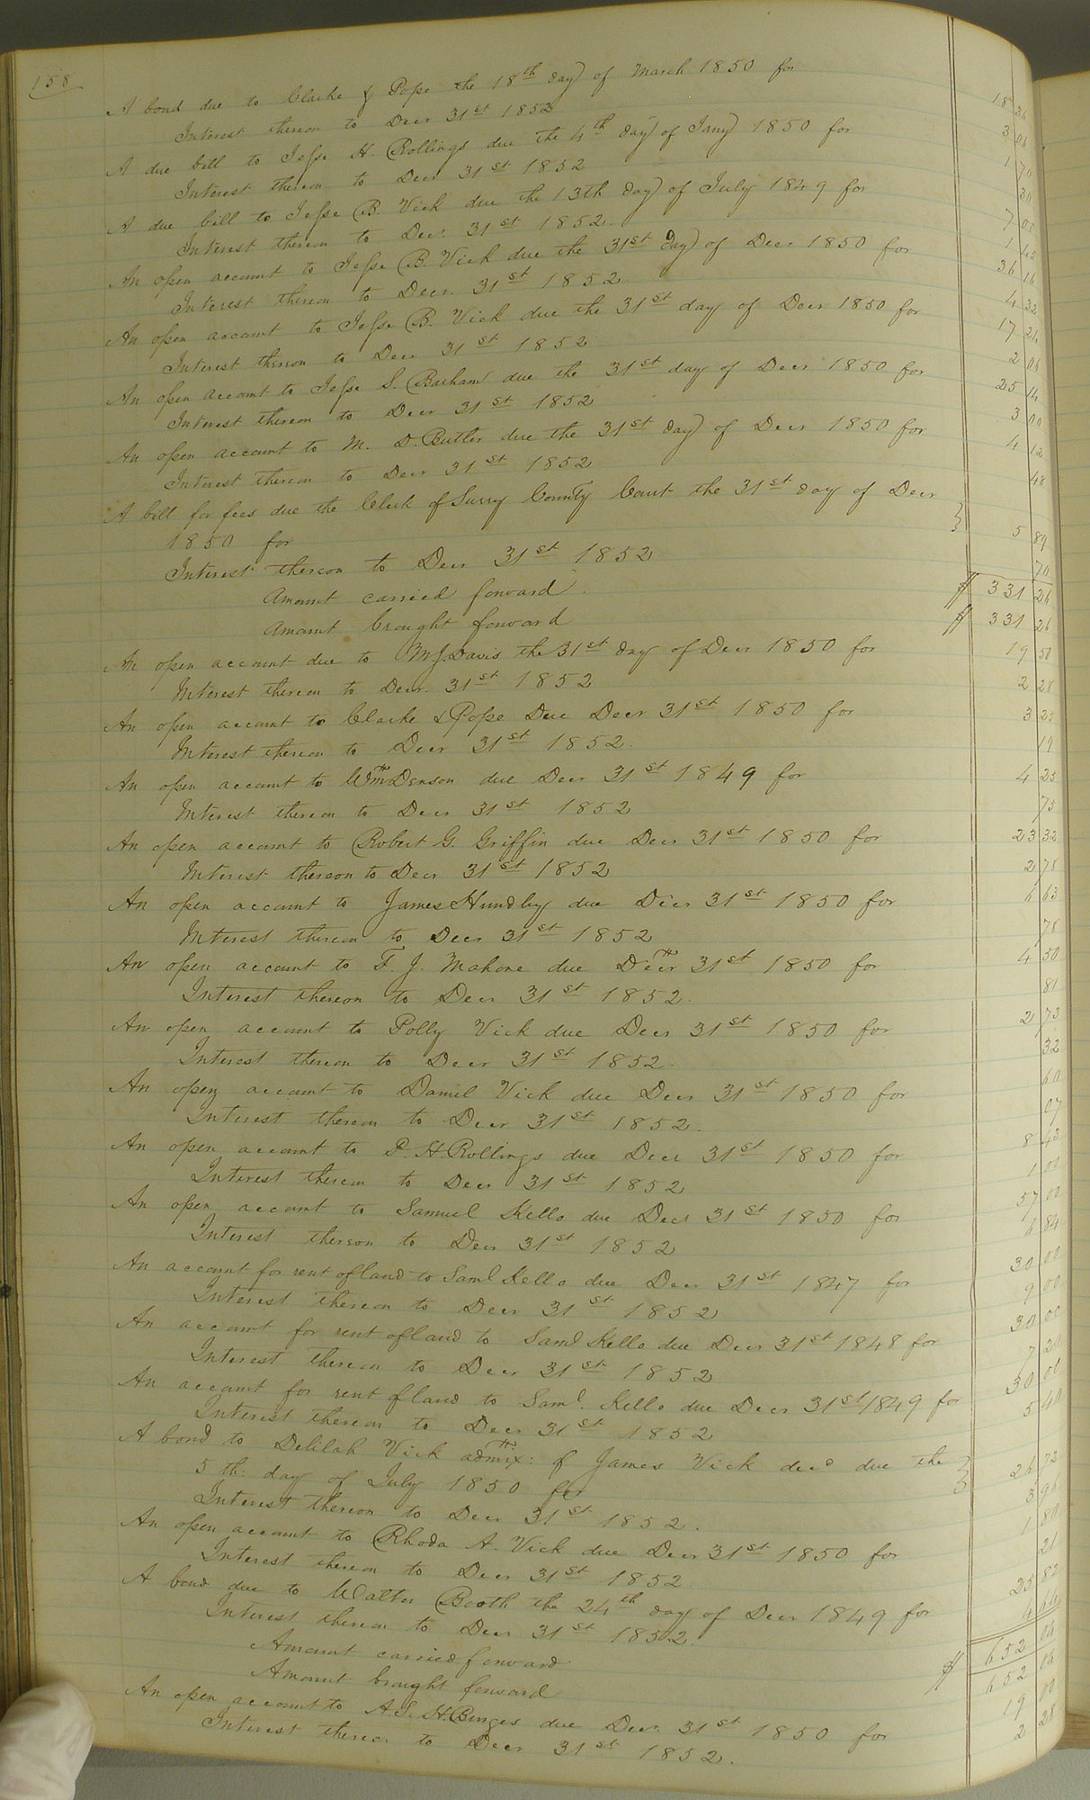 158
A bond due to Clarke & Pope the 18th day of March 1850 for 18
Interest thereon to Decr 31st 1852 3 06
A due bill to Jesse H. Rollings due the 4th day of Jany 1850 for 1 70
Interest thereon to Decr 31st 1852 30
A due bill to Jesse B. Vick due the 13th day of July 1849 for 7 08
Interest thereon to Decr 31st 1852. 1
An open account to Jesse B. Vick due the 31st day of Decr 1850 for 36 16
Interest thereon to Decr. 31st 1852 4 32
An open account to Jesse B. Vick due the 31st day of Decr 1850 for 17 24
Interest thereon to Decr 31st 1852 2 06
An open account to Jesse S. Barham due the 31st day of Decr 1850 for 25 14
Interest thereon to Decr 31st 1852 3 00
An open account to M. D. Butler due the 31st day of Decr 1850 for 4 12
Interest thereon to Decr 31st 1852 48
A bill for fees due the Clerk of Surry County Court the 31st day of Decr
1850 for 5 89
Interest thereon to Decr 31st 1852 70
Amount carried forward $ 331 26
Amount brought forward $ 331 26
An open account due to M J Davis the 31st day of Decr 1850 for 19 50
Interest thereon to Decr. 31st 1852 2 28
An open account to Clarke & Pope Due Decr 31st 1850 for 3 25
Interest thereon to Decr 31st 1852. 19
An open account to Wm Denson due Decr 31st 1849 for 4 25
Interest thereon to Decr 31st 1852 75
An open account to Robert G. Griffin due Decr 31st 1850 for 23 32
Interest thereon to Decr 31st 1852 2 78
An open account to James Hundley due Decr 31st 1850 for 6 63
Interest thereon to Decr 31st 1852 78
An open account to T. J. Mahone due Decr 31st 1850 for 4 50
Interest thereon to Decr 31st 1852. 81
An open account to Polly Vick due Decr 31st 1850 for 2 73
Interest thereon to Decr 31st 1852. 32
An open account to Daniel Vick due Decr 31st 1850 for 60
Interest thereon to Decr 31st 1852. 07
An open account to P. H. Rollings due Decr 31st 1850 for 8 43
Interest thereon to Decr 31st 1852 1 00
An open account to Samuel Kello due Decr 31st 1850 for 57 00
Interest thereon to Decr 31st 1852 6 84
An account for rent of land to Saml Kello due Decr 31st 1847 for 30 00
Interest thereon to Decr 31st 1852 9 00
An account for rent of land to Saml Kello due Decr 31st 1848 for 30 00
Interest thereon to Decr 31st 1852 7 20
An account for rent of land to Saml. Kello due Decr 31st 1849 for 30 00
Interest thereon to Decr 31st 1852 5 40
A bond to Delilah Vick admix: of James Vick decd due the
5th day of July 1850 for 26 73
Interest thereon to Decr 31st 1852. 3 96
An open account to Rhoda A. Vick due Decr 31st 1850 for 1 80
Interest thereon to Decr 31st 1852 21
A bond due to Walter Booth the 24th day of Decr 1849 for 25 82
Interest thereon to Decr 31st 1852. 4 64
Amount carried forward $ 652 06
Amount brought forward 652 06
An open account to A. S. H. Burges due Decr 31st 1850 for 19 00
Interest thereon to Decr 31st 1852. 2 28